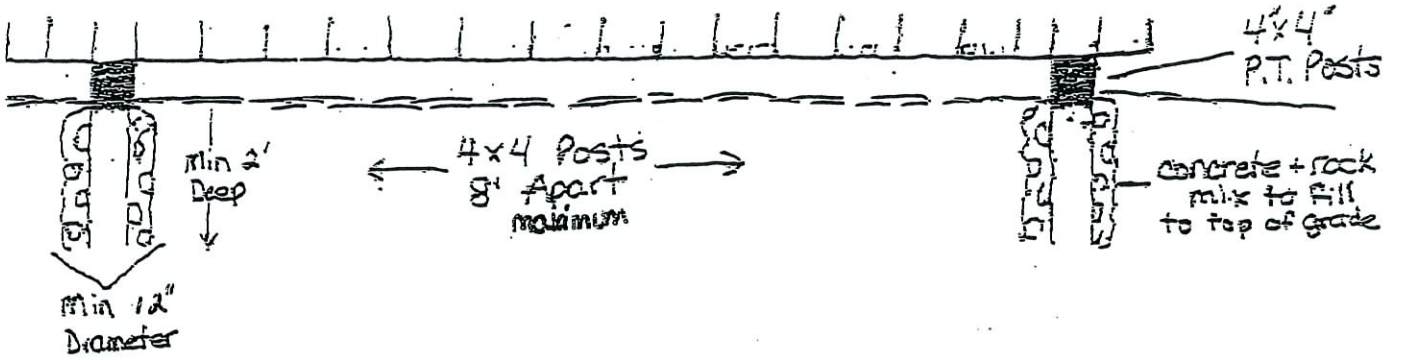 4"x4"
P.T. Posts
Min 2'
Deep
4x4 Posts
8' Apart
maximum
concrete + rock
mix to fill
to top of grade
Min 12"
Diameter